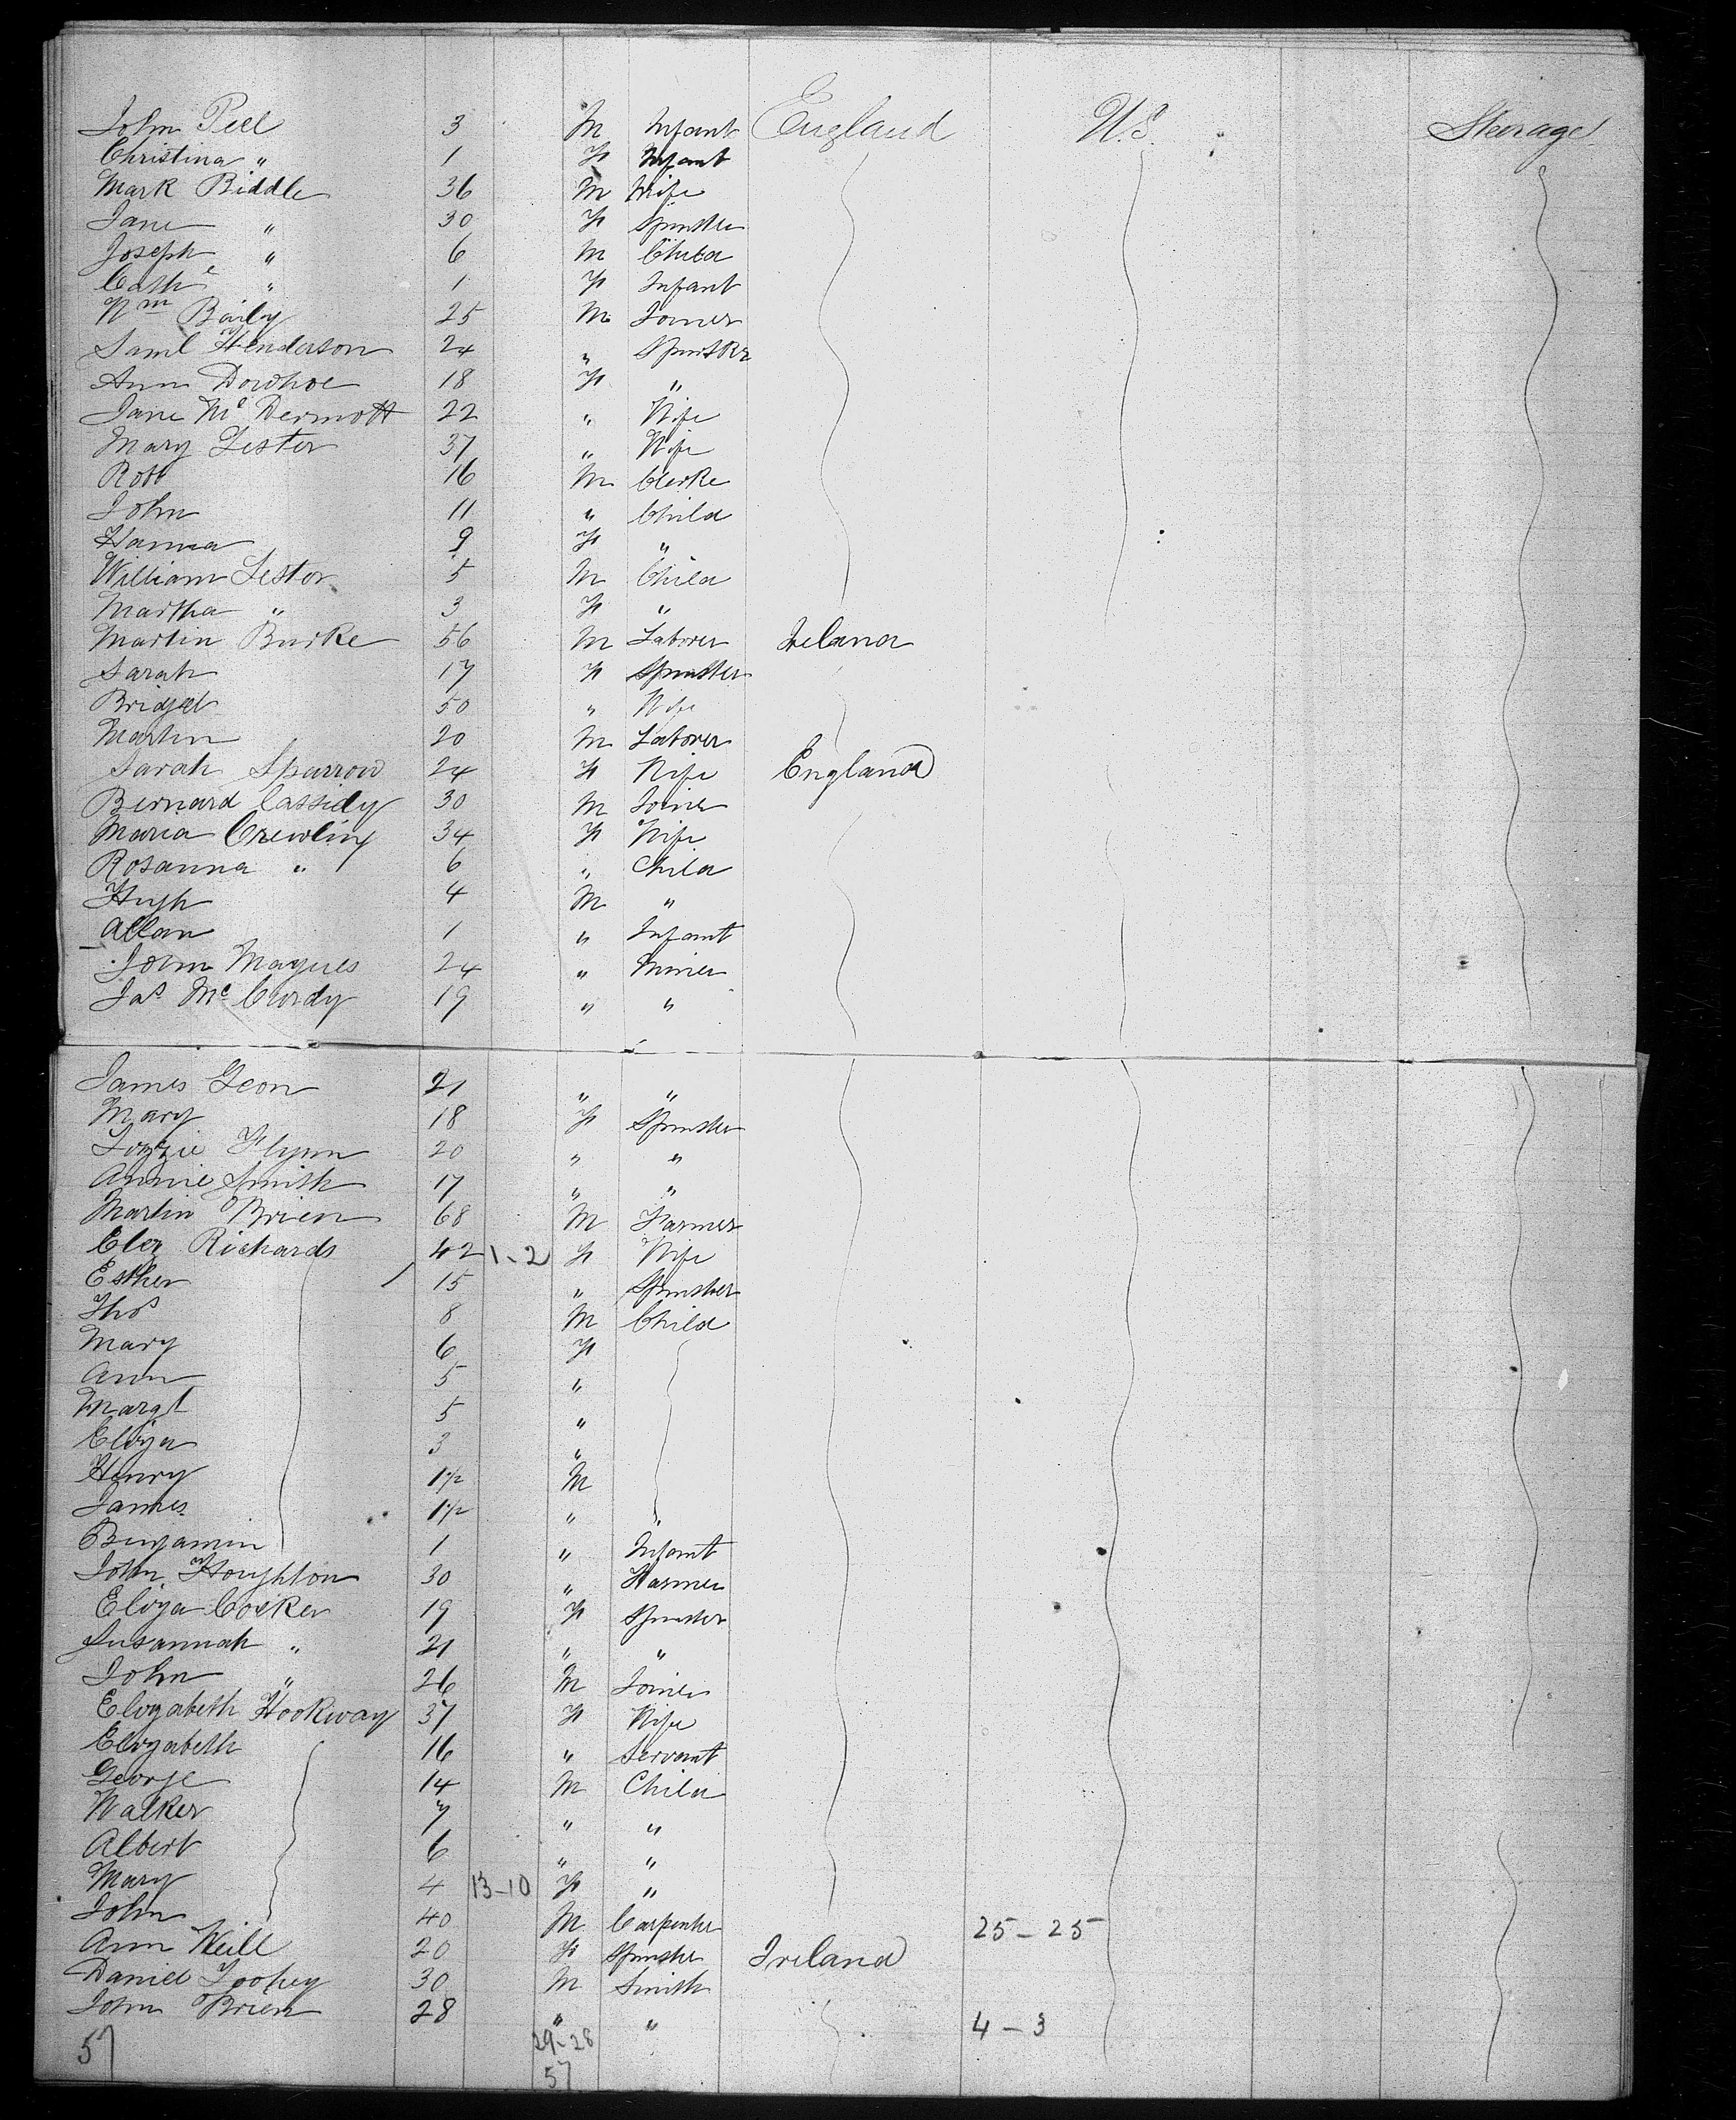 John Peel 3 M Infant England U.S. Stearage
Christina " 1 F Infant
Mark Biddle 36 M Wife
Jane " 30 F Spinster
Joseph " 6 M Child
Cath^e " 1 F Infant
W^m Baily 25 M Joiner
Saml Henderson 24 " Spinster
Ann Dowhoe 18 F "
Jane M^c Dermott 22 " Wife
Mary Lester 37 " Wife
Robt 16 M Clerke
John 11 " Child
Hanna 9 F "
William Lestor 5 M Child
Martha " 3 F "
Martin Burke 56 M Laborer Ireland
Sarah 17 F Spinster
Bridget 50 " Wife
Martin 20 M Laborer
Sarah Sparrow 24 F Wife England
Bernard Cassidy 30 M Joiner
Maria Crewling 34 F Wife
Rosanna " 6 " Child
Hugh 4 M "
Allan 1 " Infant
John Magues 24 " Miner
Ja^s M^c Curdy 19 " "
James Geon 21 " "
Mary 18 F Spinster
Lizzie Flynn 20 " "
Annie Smith 17 " "
Martin OBrien 68 M Farmer
Eliz Richards 42 1-2 F Wife
Esther 15 " Spinster
Tho^s 8 M Child
Mary 6 F
Ann 5 "
Margt 5 "
Eliza 3 "
Henry 1½ M
James 1½ " "
Benjamin 1 " Infant
John Houghton 30 " Farmer
Eliza Cocker 19 F Spinster
Susannah " 21 " "
John " 26 M Joiner
Elizabeth Hookway 37 F Wife
Elizabeth 16 " Servant
George 14 M Child
Walker 7 " "
Albert 6 " "
Mary 4 13-10 F "
John 40 M Carpenter 25-25
Ann Neill 20 F Spinster Ireland
Daniel Toohey 30 M Smith
John OBrien 28 " " 4-3
57 29-28
57